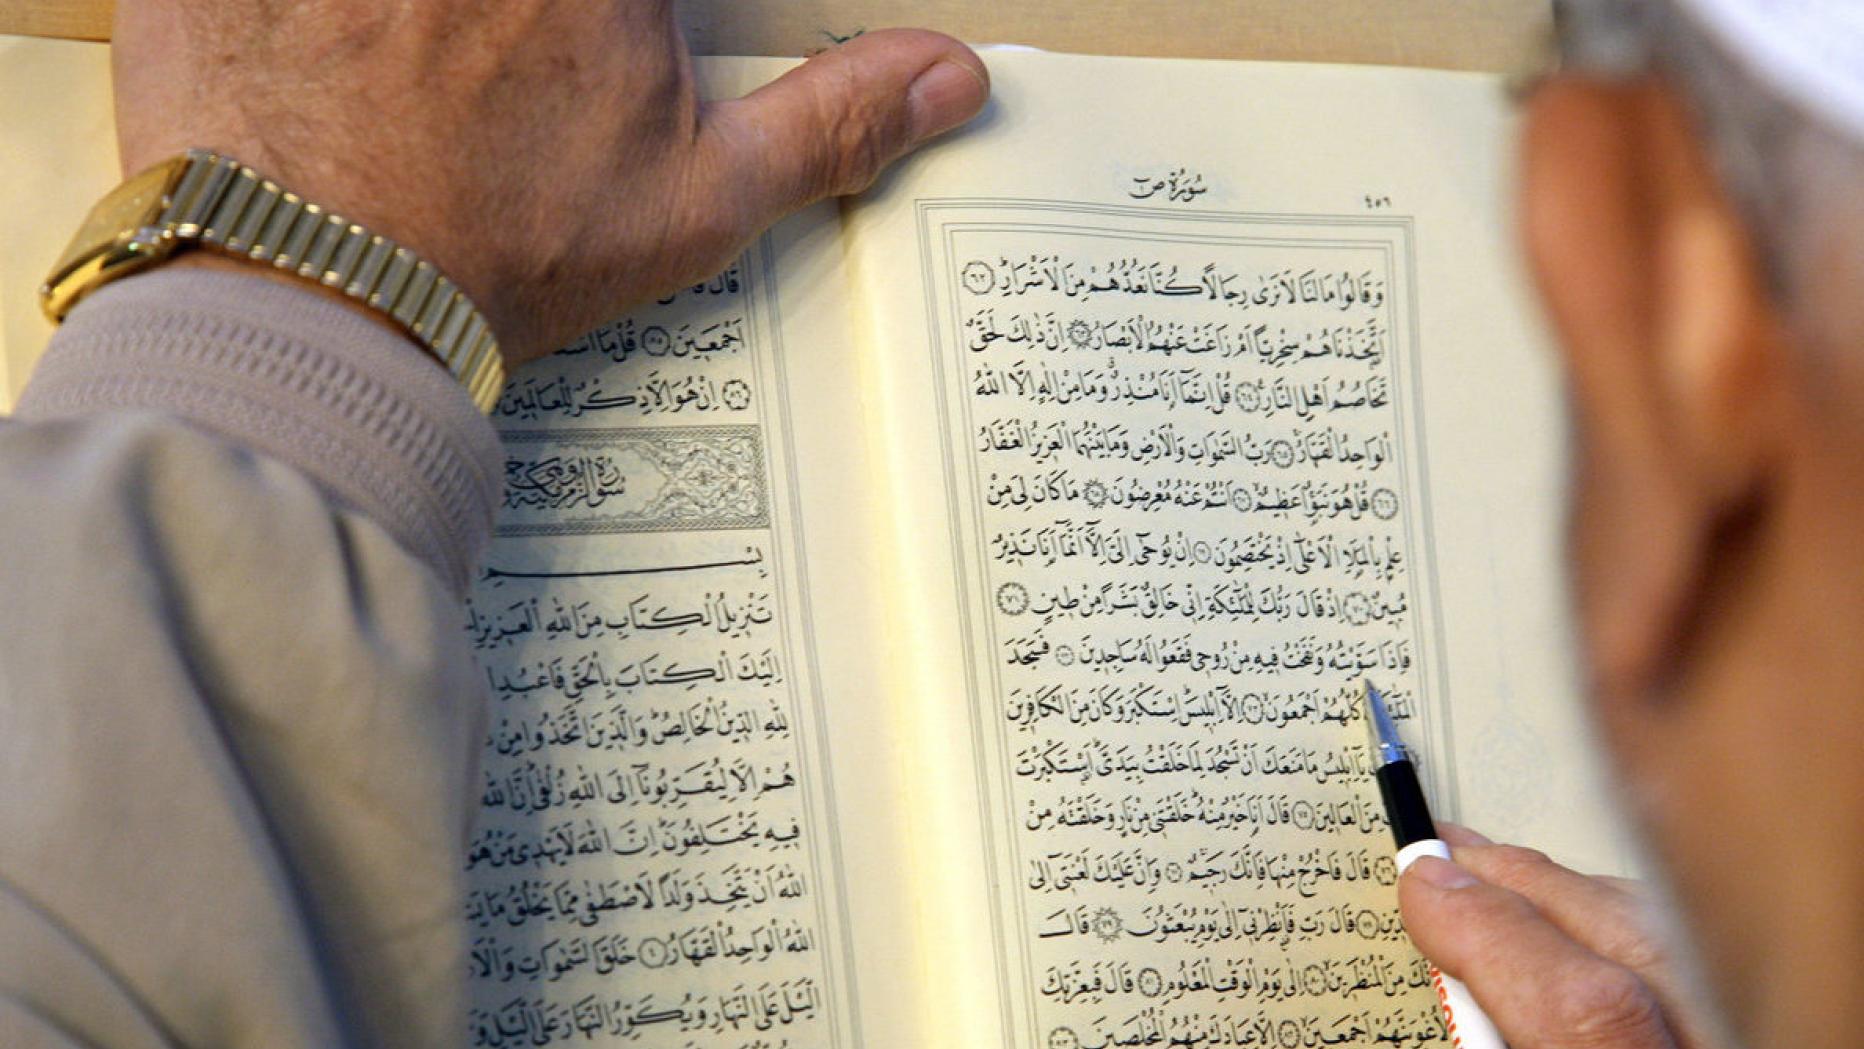 سُورَةُ صۤ
٤٥٦
وَقَالُوا مَا لَنَا لَا نَرٰى رِجَالًا كُنَّا نَعُدُّهُمْ مِنَ الْاَشْرَارِۜ ﴿٦٢﴾
اَتَّخَذْنَاهُمْ سِخْرِيًّا اَمْ زَاغَتْ عَنْهُمُ الْاَبْصَارُ ﴿٦٣﴾ اِنَّ ذٰلِكَ لَحَقٌّ
تَخَاصُمُ اَهْلِ النَّارِ۟ ﴿٦٤﴾ قُلْ اِنَّمَٓا اَنَا۬ مُنْذِرٌۗ وَمَا مِنْ اِلٰهٍ اِلَّا اللّٰهُ
الْوَاحِدُ الْقَهَّارُۚ ﴿٦٥﴾ رَبُّ السَّمٰوَاتِ وَالْاَرْضِ وَمَا بَيْنَهُمَا الْعَزِيزُ الْغَفَّارُ
﴿٦٦﴾ قُلْ هُوَ نَبَؤٌ۬ا عَظِيمٌۙ ﴿٦٧﴾ اَنْتُمْ عَنْهُ مُعْرِضُونَ ﴿٦٨﴾ مَا كَانَ لِيَ مِنْ
عِلْمٍ بِالْمَلَأِ الْاَعْلٰٓى اِذْ يَخْتَصِمُونَ ﴿٦٩﴾ اِنْ يُوحٰٓى اِلَيَّ اِلَّٓا اَنَّمَٓا اَنَا۬ نَذِيرٌ
مُبِينٌ ﴿٧٠﴾ اِذْ قَالَ رَبُّكَ لِلْمَلٰٓئِكَةِ اِنِّي خَالِقٌ بَشَرًا مِنْ طِينٍ ﴿٧١﴾
فَاِذَا سَوَّيْتُهُ وَنَفَخْتُ فِيهِ مِنْ رُوحِي فَقَعُوا لَهُ سَاجِدِينَ ﴿٧٢﴾ فَسَجَدَ
الْمَلٰٓئِكَةُ كُلُّهُمْ اَجْمَعُونَۙ ﴿٧٣﴾ اِلَّٓا اِبْلِيسَۜ اِسْتَكْبَرَ وَكَانَ مِنَ الْكَافِرِينَ
يَٓا اِبْلِيسُ مَا مَنَعَكَ اَنْ تَسْجُدَ لِمَا خَلَقْتُ بِيَدَيَّۜ اَسْتَكْبَرْتَ
مِنَ الْعَالِينَ ﴿٧٥﴾ قَالَ اَنَا۬ خَيْرٌ مِنْهُۜ خَلَقْتَنِي مِنْ نَارٍ وَخَلَقْتَهُ مِنْ
﴿٧٦﴾ قَالَ فَاخْرُجْ مِنْهَا فَاِنَّكَ رَجِيمٌۚ ﴿٧٧﴾ وَاِنَّ عَلَيْكَ لَعْنَتِٓي اِلٰى
الدِّينِ ﴿٧٨﴾ قَالَ رَبِّ فَاَنْظِرْنِٓي اِلٰى يَوْمِ يُبْعَثُونَ ﴿٧٩﴾ قَالَ
مِنَ الْمُنْظَرِينَۙ ﴿٨٠﴾ اِلٰى يَوْمِ الْوَقْتِ الْمَعْلُومِ ﴿٨١﴾ قَالَ فَبِعِزَّتِكَ
لَاُغْوِيَنَّهُمْ اَجْمَعِينَۙ ﴿٨٢﴾ اِلَّا عِبَادَكَ مِنْهُمُ الْمُخْلَصِينَ ﴿٨٣﴾
قَالَ
اَجْمَعِينَ ﴿٨٥﴾ قُلْ مَٓا
﴿٨٦﴾ اِنْ هُوَ اِلَّا ذِكْرٌ لِلْعَالَمِينَ
بِسْمِ
تَنْزِيلُ الْكِتَابِ مِنَ اللّٰهِ الْعَزِيزِ
اِلَيْكَ الْكِتَابَ بِالْحَقِّ فَاعْبُدِ
لِلّٰهِ الدِّينُ الْخَالِصُۜ وَالَّذِينَ اتَّخَذُوا مِنْ
هُمْ اِلَّا لِيُقَرِّبُونَٓا اِلَى اللّٰهِ زُلْفٰىۜ اِنَّ اللّٰهَ
فِيهِ يَخْتَلِفُونَۜ اِنَّ اللّٰهَ لَا يَهْدِي مَنْ هُوَ
اللّٰهُ اَنْ يَتَّخِذَ وَلَدًا لَاصْطَفٰى مِمَّا يَخْلُقُ مَا
اللّٰهُ الْوَاحِدُ الْقَهَّارُ ﴿٤﴾ خَلَقَ السَّمٰوَاتِ
الَّيْلَ عَلَى النَّهَارِ وَيُكَوِّرُ النَّهَارَ عَلَى الَّيْلِ